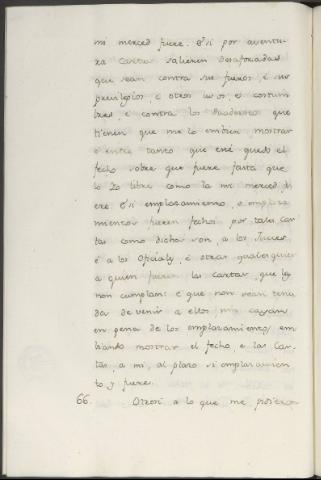 mi merced fuere. E si por aventu-
ra cartas salieren desaforadas
que sean contra sus fueros, e sus
previlegios, e otros usos, e costum
bres, e contra los quadernos que
tienen que me lo embien mostrar
e entre tanto que esté quedo el
fecho sobre que fuere fasta que
lo Yo libre como la mi merced fu
ere E si emplazamiento, o emplaza
mientos fueren fechos por tales car
tas como dichas son, a los Jueces
e a los Oficiales, e otras qualesquier
a quien fueren las cartas, que las
non cumplan: e que non sean tenu
dos de venir a ellos, nin cayan
en pena de los emplazamientos em
biando mostrar el fecho, e las Car
tas, a mi, al plazo si emplazamien
to y fuere.
66. Otrosi a lo que me pidieron